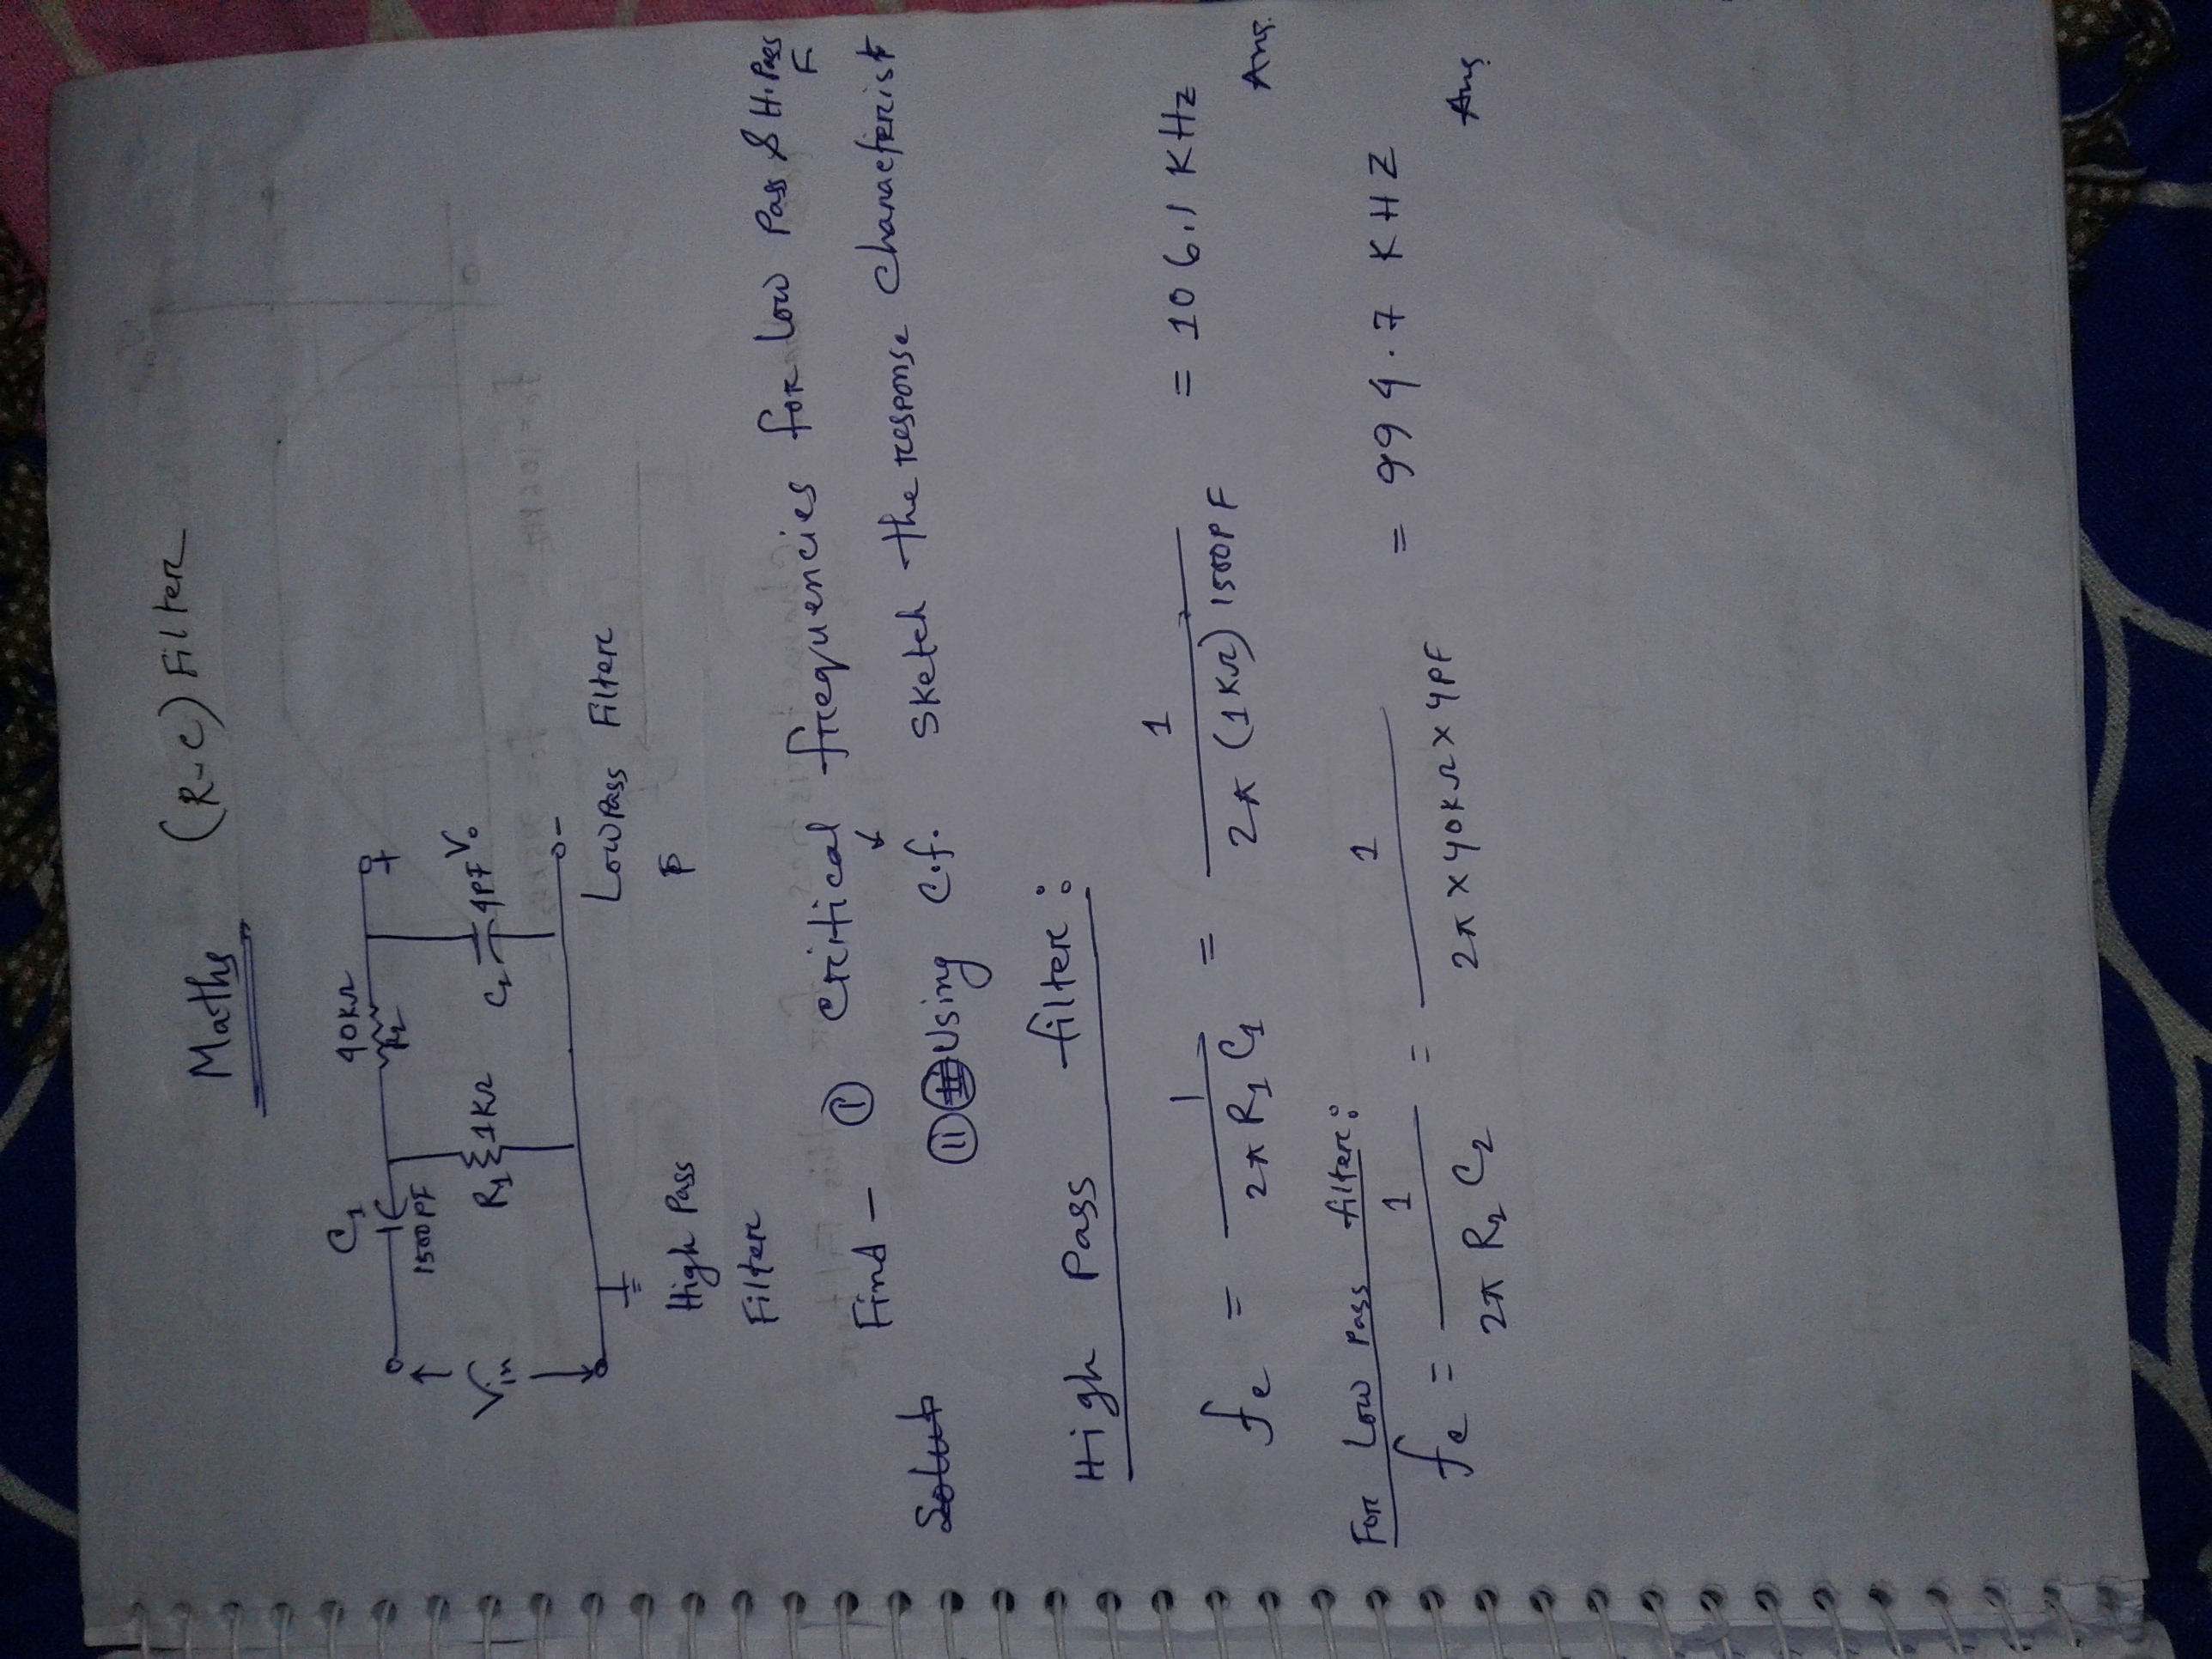 Maths (R-C) Filter
C1 40KΩ
1500PF R2 +
Vin R1 1KΩ C2 4PF Vo
-
Low Pass Filter
High Pass
Filter
Find - (I) Critical frequencies for Low Pass & H. Pass
F
Solut
(II) Using C.f. Sketch the response Characterist
High Pass filter:
fc = 1 / 2π R1 C1 = 1 / 2π (1KΩ) 1500PF = 106.1 KHz
Ans.
For Low Pass filter:
fc = 1 / 2π R2 C2 = 1 / 2π × 40KΩ × 4PF = 994.7 KHZ
Ans